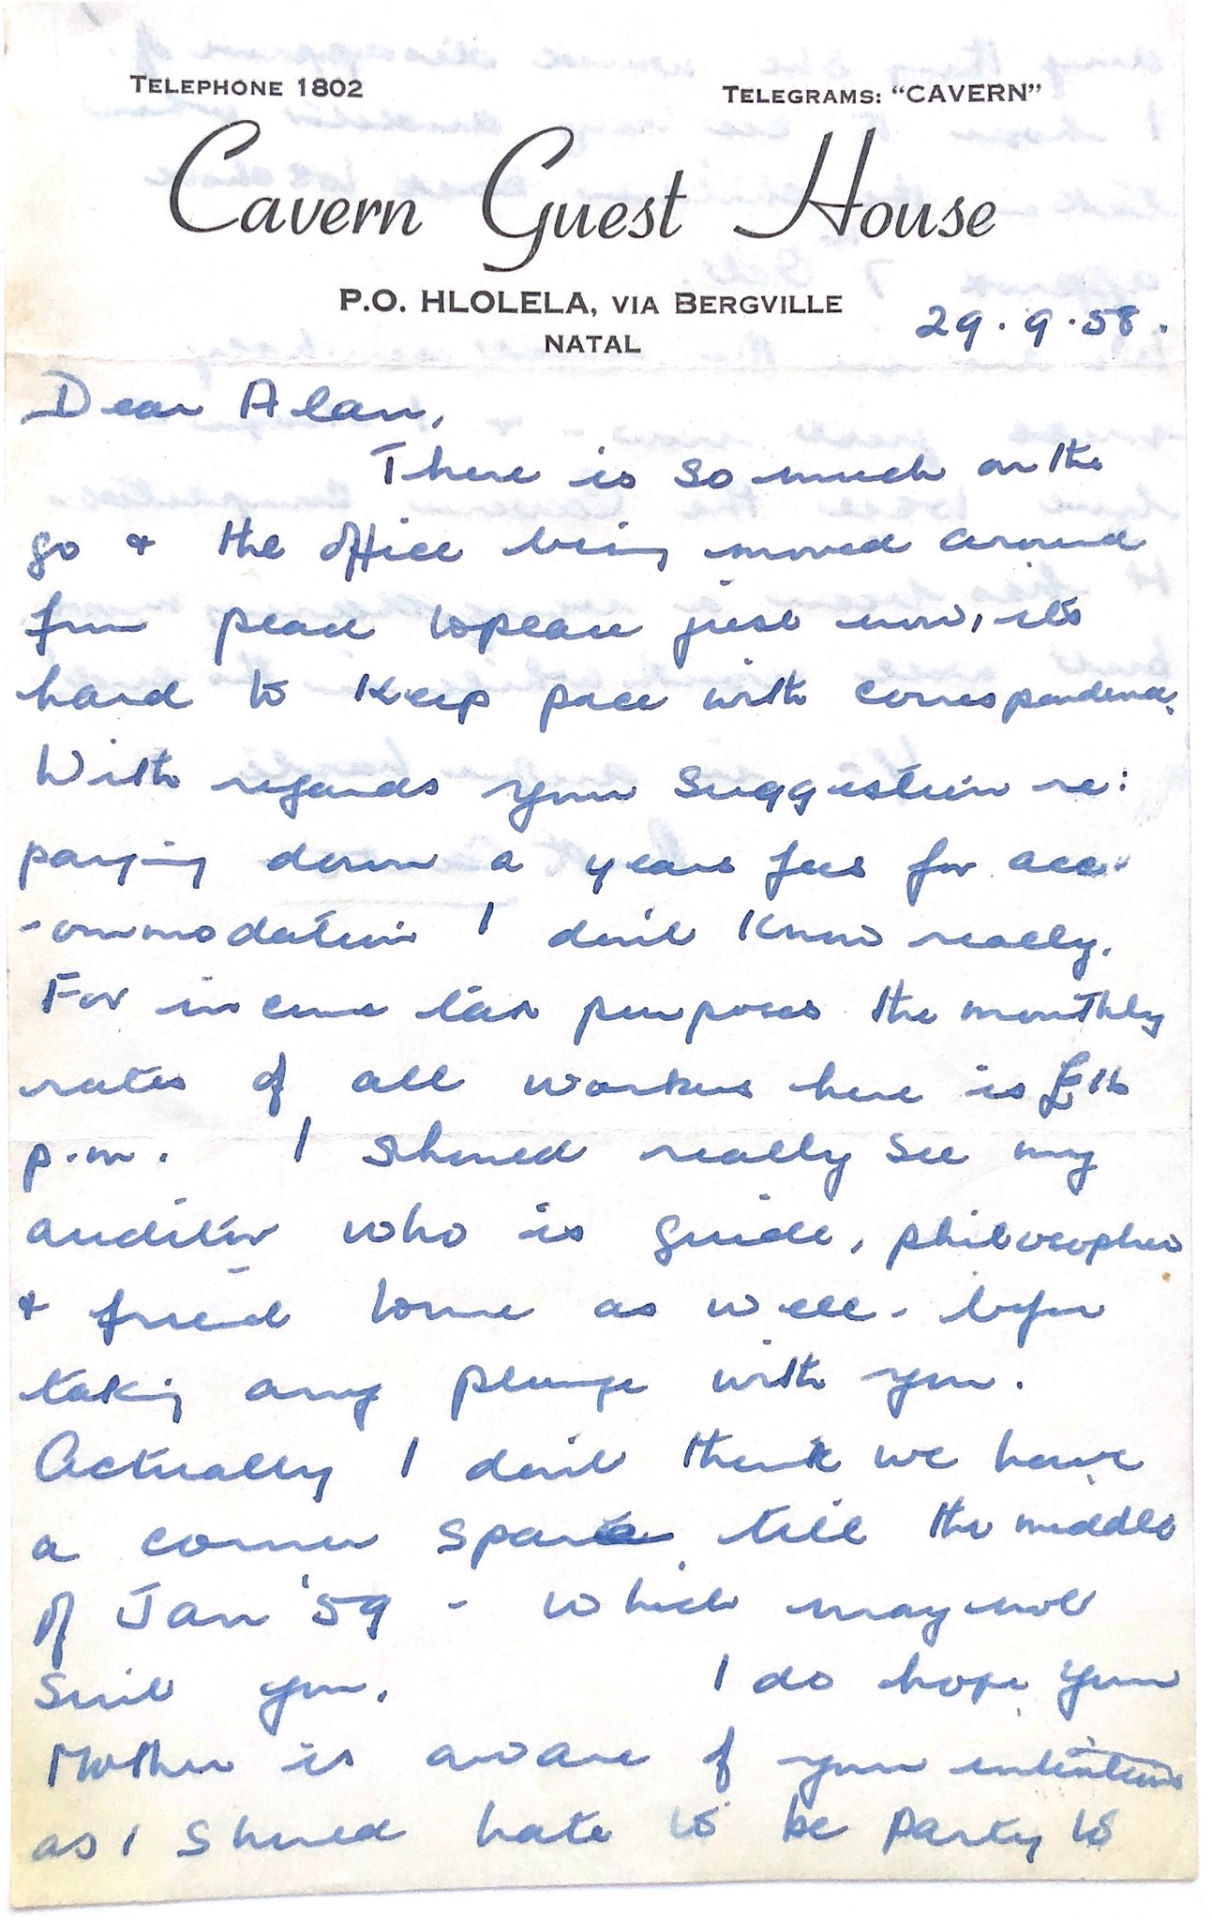 TELEPHONE 1802
TELEGRAMS: "CAVERN"
Cavern Guest House
P.O. HLOLELA, VIA BERGVILLE
NATAL
29.9.58.
Dear Alan,
There is so much on the
go & the office being moved around
from place to place just now, its
hard to keep pace with correspondence.
With regards your suggestion re:
paying down a years fees for acc-
-ommodation I don't know really.
For income tax purposes the monthly
rates of all workers here is
p.m. I should really see my
auditor who is guide, philosopher
& friend to me as well - before
taking any plunge with you.
Actually I don't think we have
a corner spare till the middle
of Jan '59 - which may not
suit you. I do hope your
Mother is aware of your intentions
as I should hate to be party to